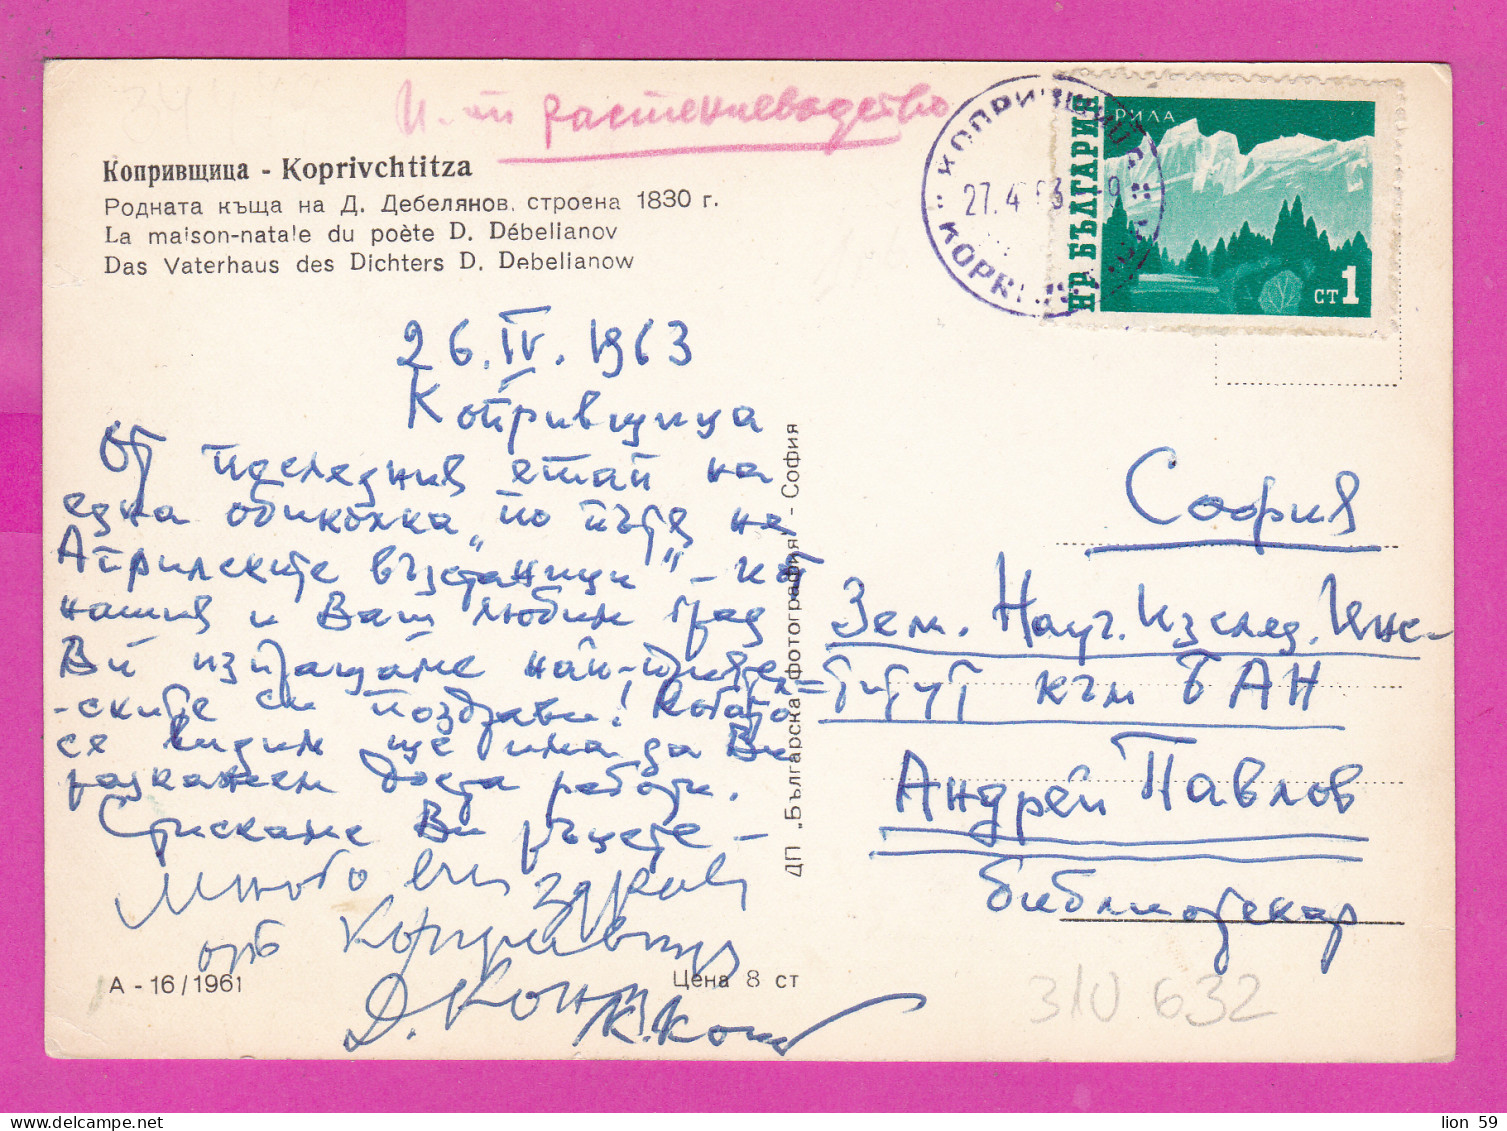 И-т растениевъдство
Копривщица - Koprivchtitza
Родната къща на Д. Дебелянов, строена 1830 г.
La maison-natale du poète D. Débelianov
Das Vaterhaus des Dichters D. Debelianow
КОПРИВЩИЦА
27.4.63 -9
НР БЪЛГАРИЯ
РИЛА
СТ 1
26.IV.1963
Копривщица
От последния етап на
една обиколка „по пътя на
Априлските въстаници" - от
нашия и Ваш любим град
Ви изпращаме най-
-ските си поздрави! Когато
се видим ще има да Ви
разкажем доста работи.
Стискаме Ви ръцете -
Много здраве
от Копривщица
Д.
К.
ДП „Българска фотография" - София
София
Зем. Науч. Изслед. Инс-
титут към БАН
Андрей Павлов
библиотекар
А - 16/1961
Цена 8 ст
310.632
lion 59